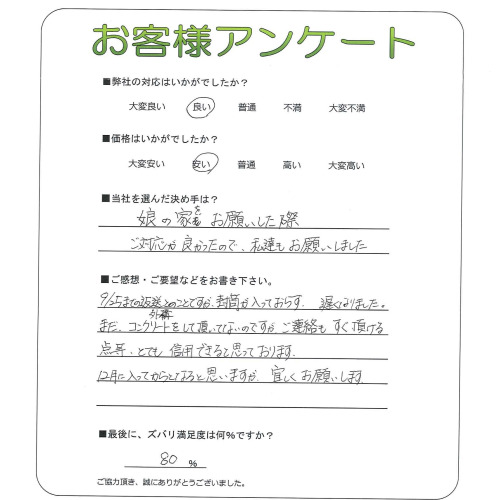 お客様アンケート
■弊社の対応はいかがでしたか？
大変良い 良い 普通 不満 大変不満
■価格はいかがでしたか？
大変安い 安い 普通 高い 大変高い
■当社を選んだ決め手は？
娘の家をお願いした際
ご対応が良かったので、私達もお願いしました
■ご感想・ご要望などをお書き下さい。
9/25までの返送とのことですが、封筒が入っておらず、遅くなりました。
外構
まだ、コンクリートをして頂いてないのですが、ご連絡もすぐ頂ける
点等、とても信用できると思っております。
12月に入ってからとなると思いますが、宜しくお願いします。
■最後に、ズバリ満足度は何%ですか？
80 %
ご協力頂き、誠にありがとうございました。